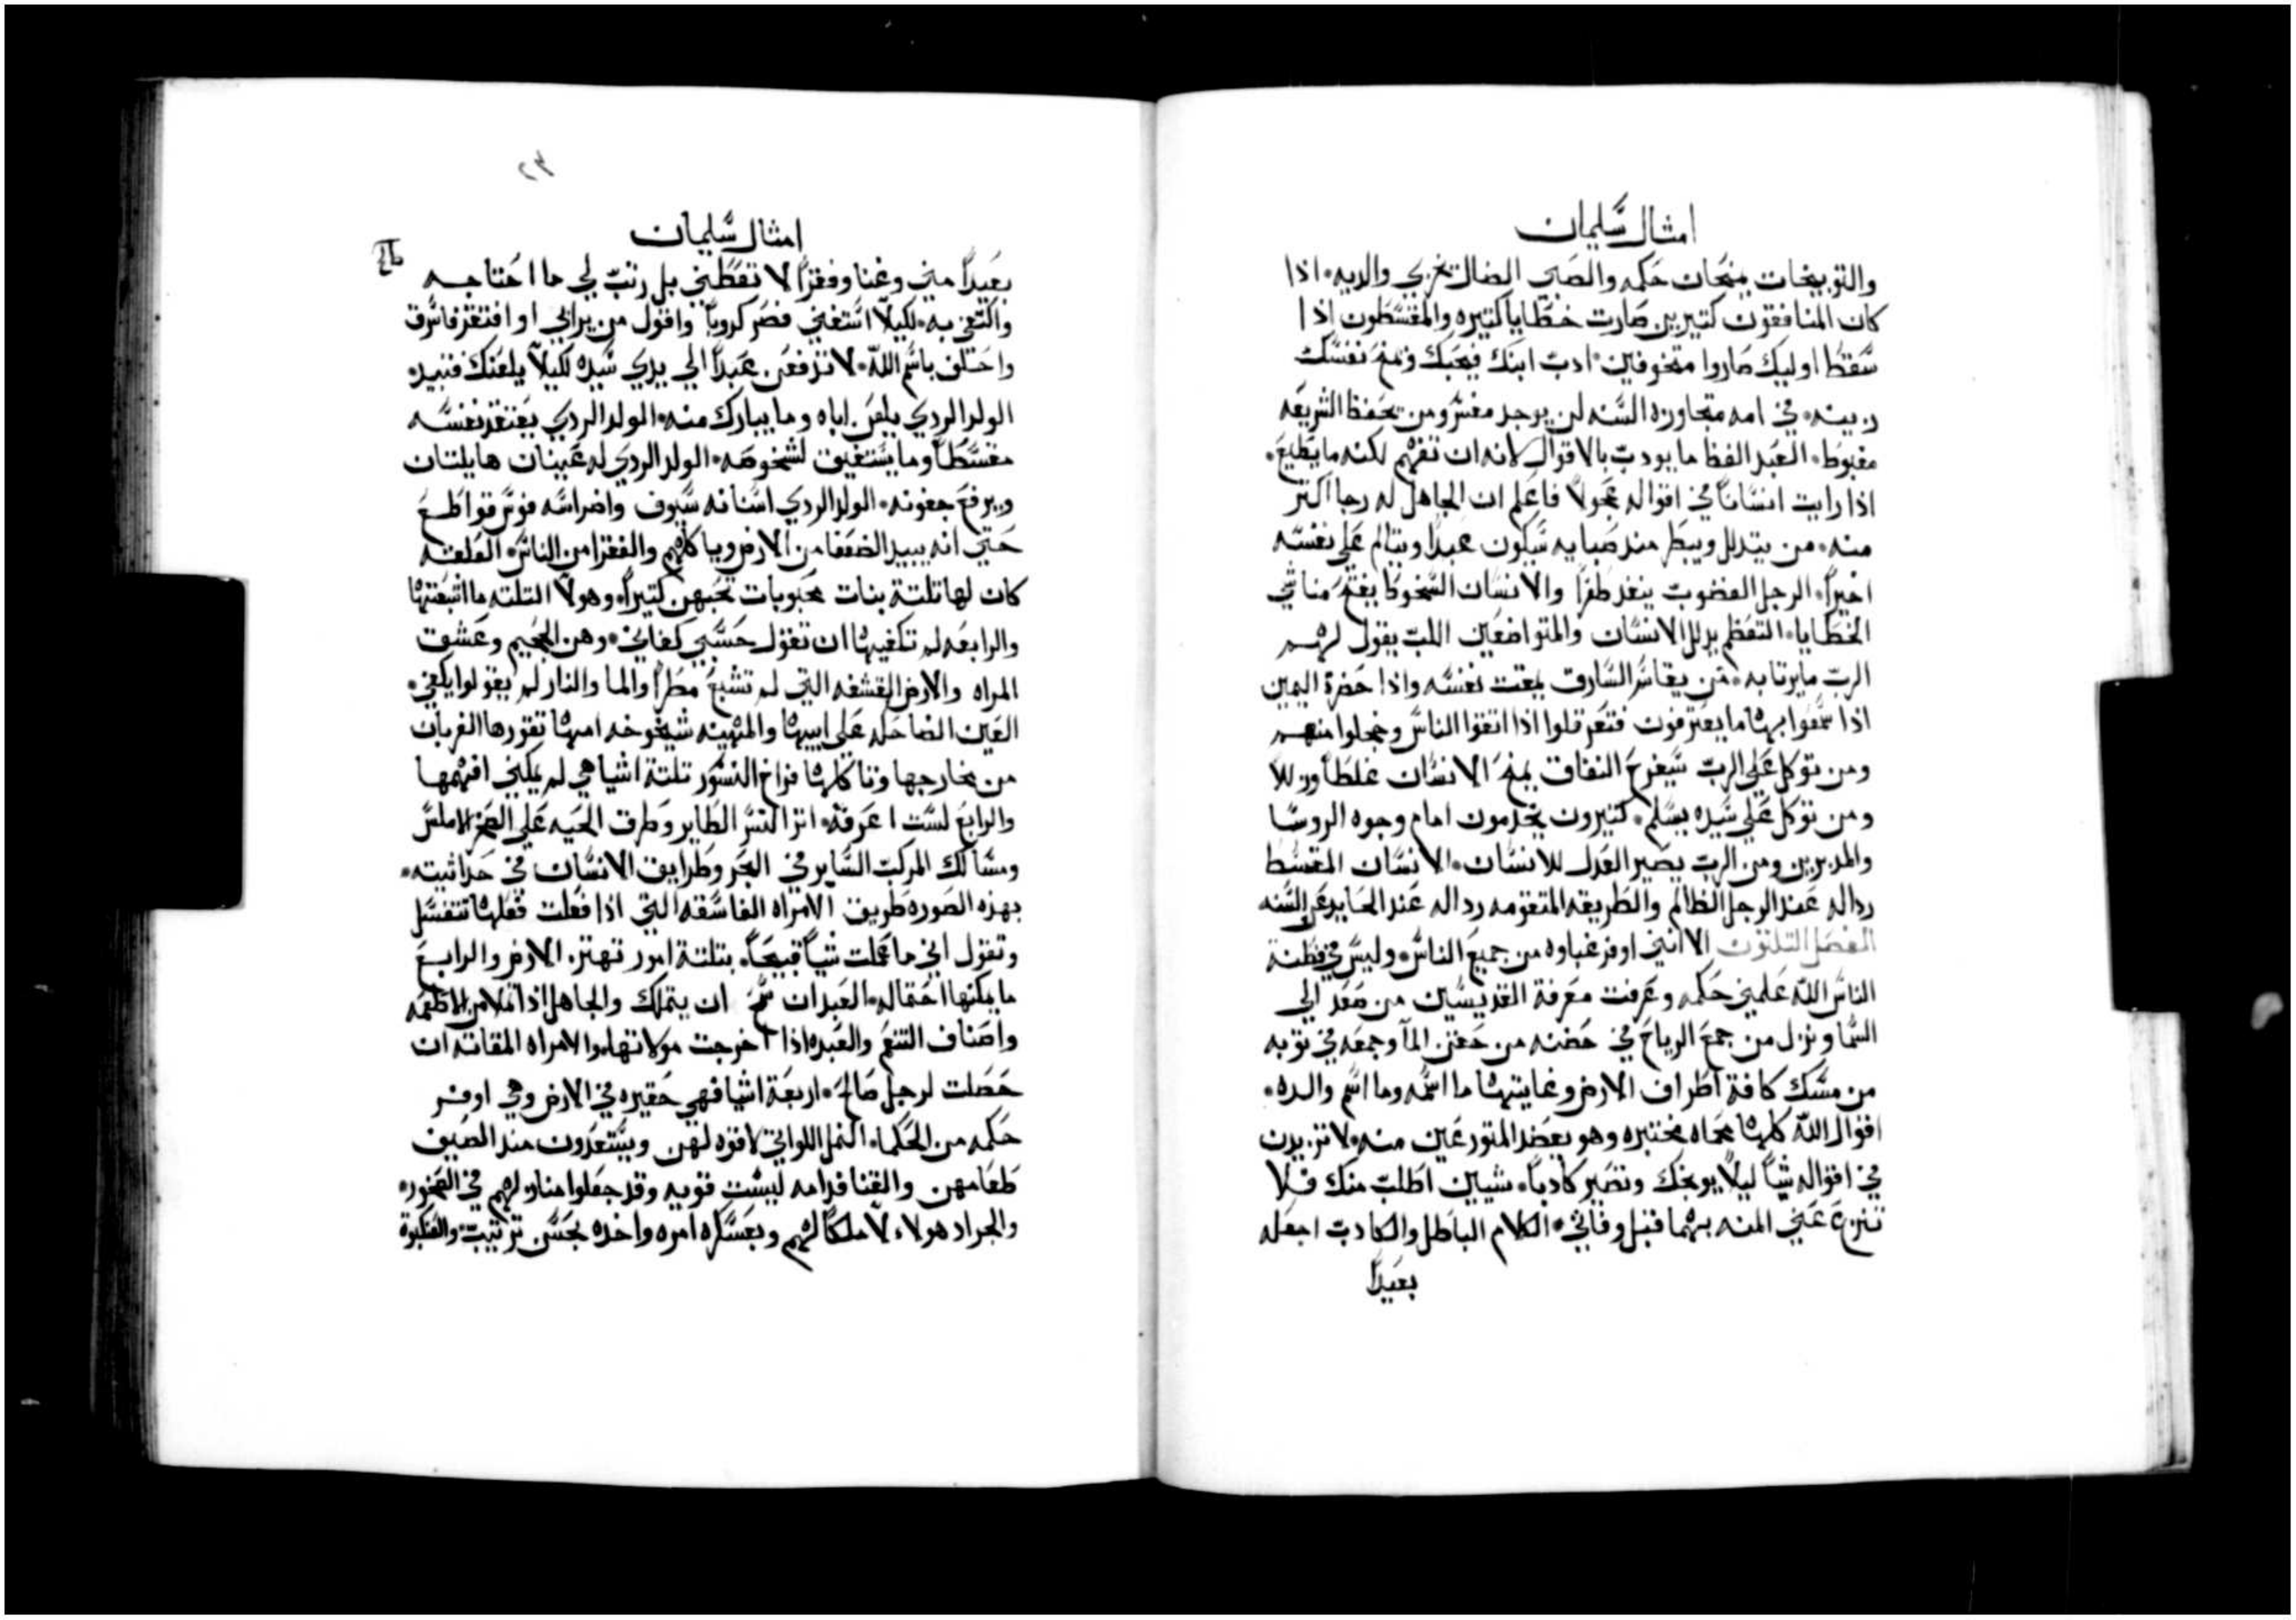 امثال سليمان
والتوبيخات يمنحان حكمه والصبي الضال يخزي والديه اذا
كان المنافقون كتيرين صارت خطايا كتيره والمقسطون اذا
سقط اوليك صاروا متخوفين ادب ابنك فيحبك ويمنح نفسك
زينه في امه متجاوزه السنه لن يوجد مفسر ومن يحفظ الشريعه
مغبوط العبد الفظ ما يودب بالاقوال لانه ان تفهم لكنه ما يطيع
اذا رايت انسانا في اقواله عجولا فاعلم ان الجاهل له رجا اكتر
منه من يتدلل ويبطر منذ صبايه سيكون عبدا ويتالم علي نفسه
اخيرا الرجل الغضوب ينفد طفرا والانسان السخوط يفتح مناشي
الخطايا التعظم يدلل الانسان والمتواضعين اللب يقول لهم
الرب ما يرتا به من يقاسم السارق يمقت نفسه واذا حضرة اليمين
اذا سمعوا بها ما يعترفون فتعرقلوا اذا اتقوا الناس وخجلوا منهم
ومن توكل علي الرب سيفرح النفاق يمنح الانسان غلطا وزللا
ومن توكل علي سيده يسلم كتيرون يخدمون امام وجوه الروسا
والمدبرين ومن الرب يصير العدل للانسان الانسان المقسط
رداله عند الرجل الظالم والطريقه المتقومه رداله عند الحايد عن السنه
الفصل التلتون الا انني اوفر غباوه من جميع الناس وليس في فطنة
الناس الله علمني حكمه وعرفت معرفة القديسين من صعد الي
السما ونزل من جمع الرياح في حضنه من حقن المآ وجمعه في توبه
من مسك كافة اطراف الارض وغايتها ما اسمه وما اسم والده
اقوال الله كلها محاه مختبره وهو يعضد المتورعين منه لا تزيدن
في اقواله شيا ليلا يوبخك وتصير كادبا شيين اطلب منك فلا
تنزع عني المنه بهما قبل وفاتي الكلام الباطل والكادب اجعله
بعيدا
٢٣
امثال سليمان
بعيدا مني وغنا وفقرا لا تعطني بل رتب لي ما احتاجه
واكتفي به لكيلا استغني فصر كدوبا واقول من يراني او افتقر فاسرق
واحتلف باسم الله لا تدفعن عبدا الي يدي سيده لكيلا يلعنك فتبيد
الولد الردي يلعن اباه وما يبارك منه الولد الردي يعتقد نفسه
مقسطا وما يستفيق لشخوصه الولد الردي له عينان هايلتان
ويرفع جفونه الولد الردي اسنانه سيوف واضراسه فوس قواطع
حتي انه يبيد الضعفا من الارض وياكلهم والفقرا من الناس العلقه
كان لها تلتة بنات محبوبات تحبهن كتيرا وهولا التلته ما اشبعتها
والرابعه لم تكفيها ان تقول حسبي كفاني وهن الجحيم وعشق
المراه والارض القشفه التي لم تشبع مطرا والما والنار لم يقولوا يكفي
العين الضاحكه علي ابيها والمهينه شيخوخه امها تقورها الغربان
من مخارجها وتاكلها فراخ النسور تلتة اشيا هي لم يمكني افهمها
والرابع لست اعرفه اتر النسر الطاير وطرق الحيه علي الصخر الاملس
ومسالك المركب الساير في البحر وطرايق الانسان في حداثيته
بهذه الصوره طريق الامراه الفاسقه التي اذا فعلت فعلها تتغسل
وتقول اني ما عملت شيا قبيحا بتلتة امور تهتز الارض والرابع
ما يمكنها احتماله العبد ان ان يتملك والجاهل اذا تملا من الاطعمه
واصناف التنعم والعبده اذا اخرجت مولاتها والامراه المقاته ان
حصلت لرجل صالح اربعة اشيا فهي حقيره في الارض وهي اوفر
حكمه من الحكما النمل اللواتي لا قوه لهن ويستعدون منذ الصيف
طعامهن والقنافد امه ليست قويه وقد جعلوا منازلهم في الصخور
والجراد هولاء لا ملكا لهم وبعسكره امره واحده بحسن ترتيب والعنكبوة